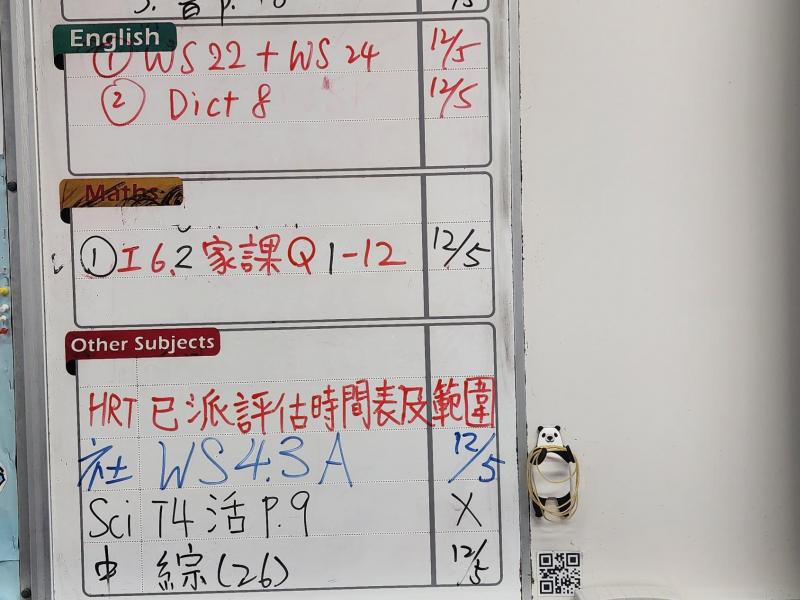 English
① WS 22 + WS 24 12/5
② Dict 8 12/5
Maths
① I 6.2 家課 Q 1-12 12/5
Other Subjects
HRT 已派評估時間表及範圍
社 WS 4.3 A 12/5
Sci T4 活 P.9 X
中 綜(26) 12/5